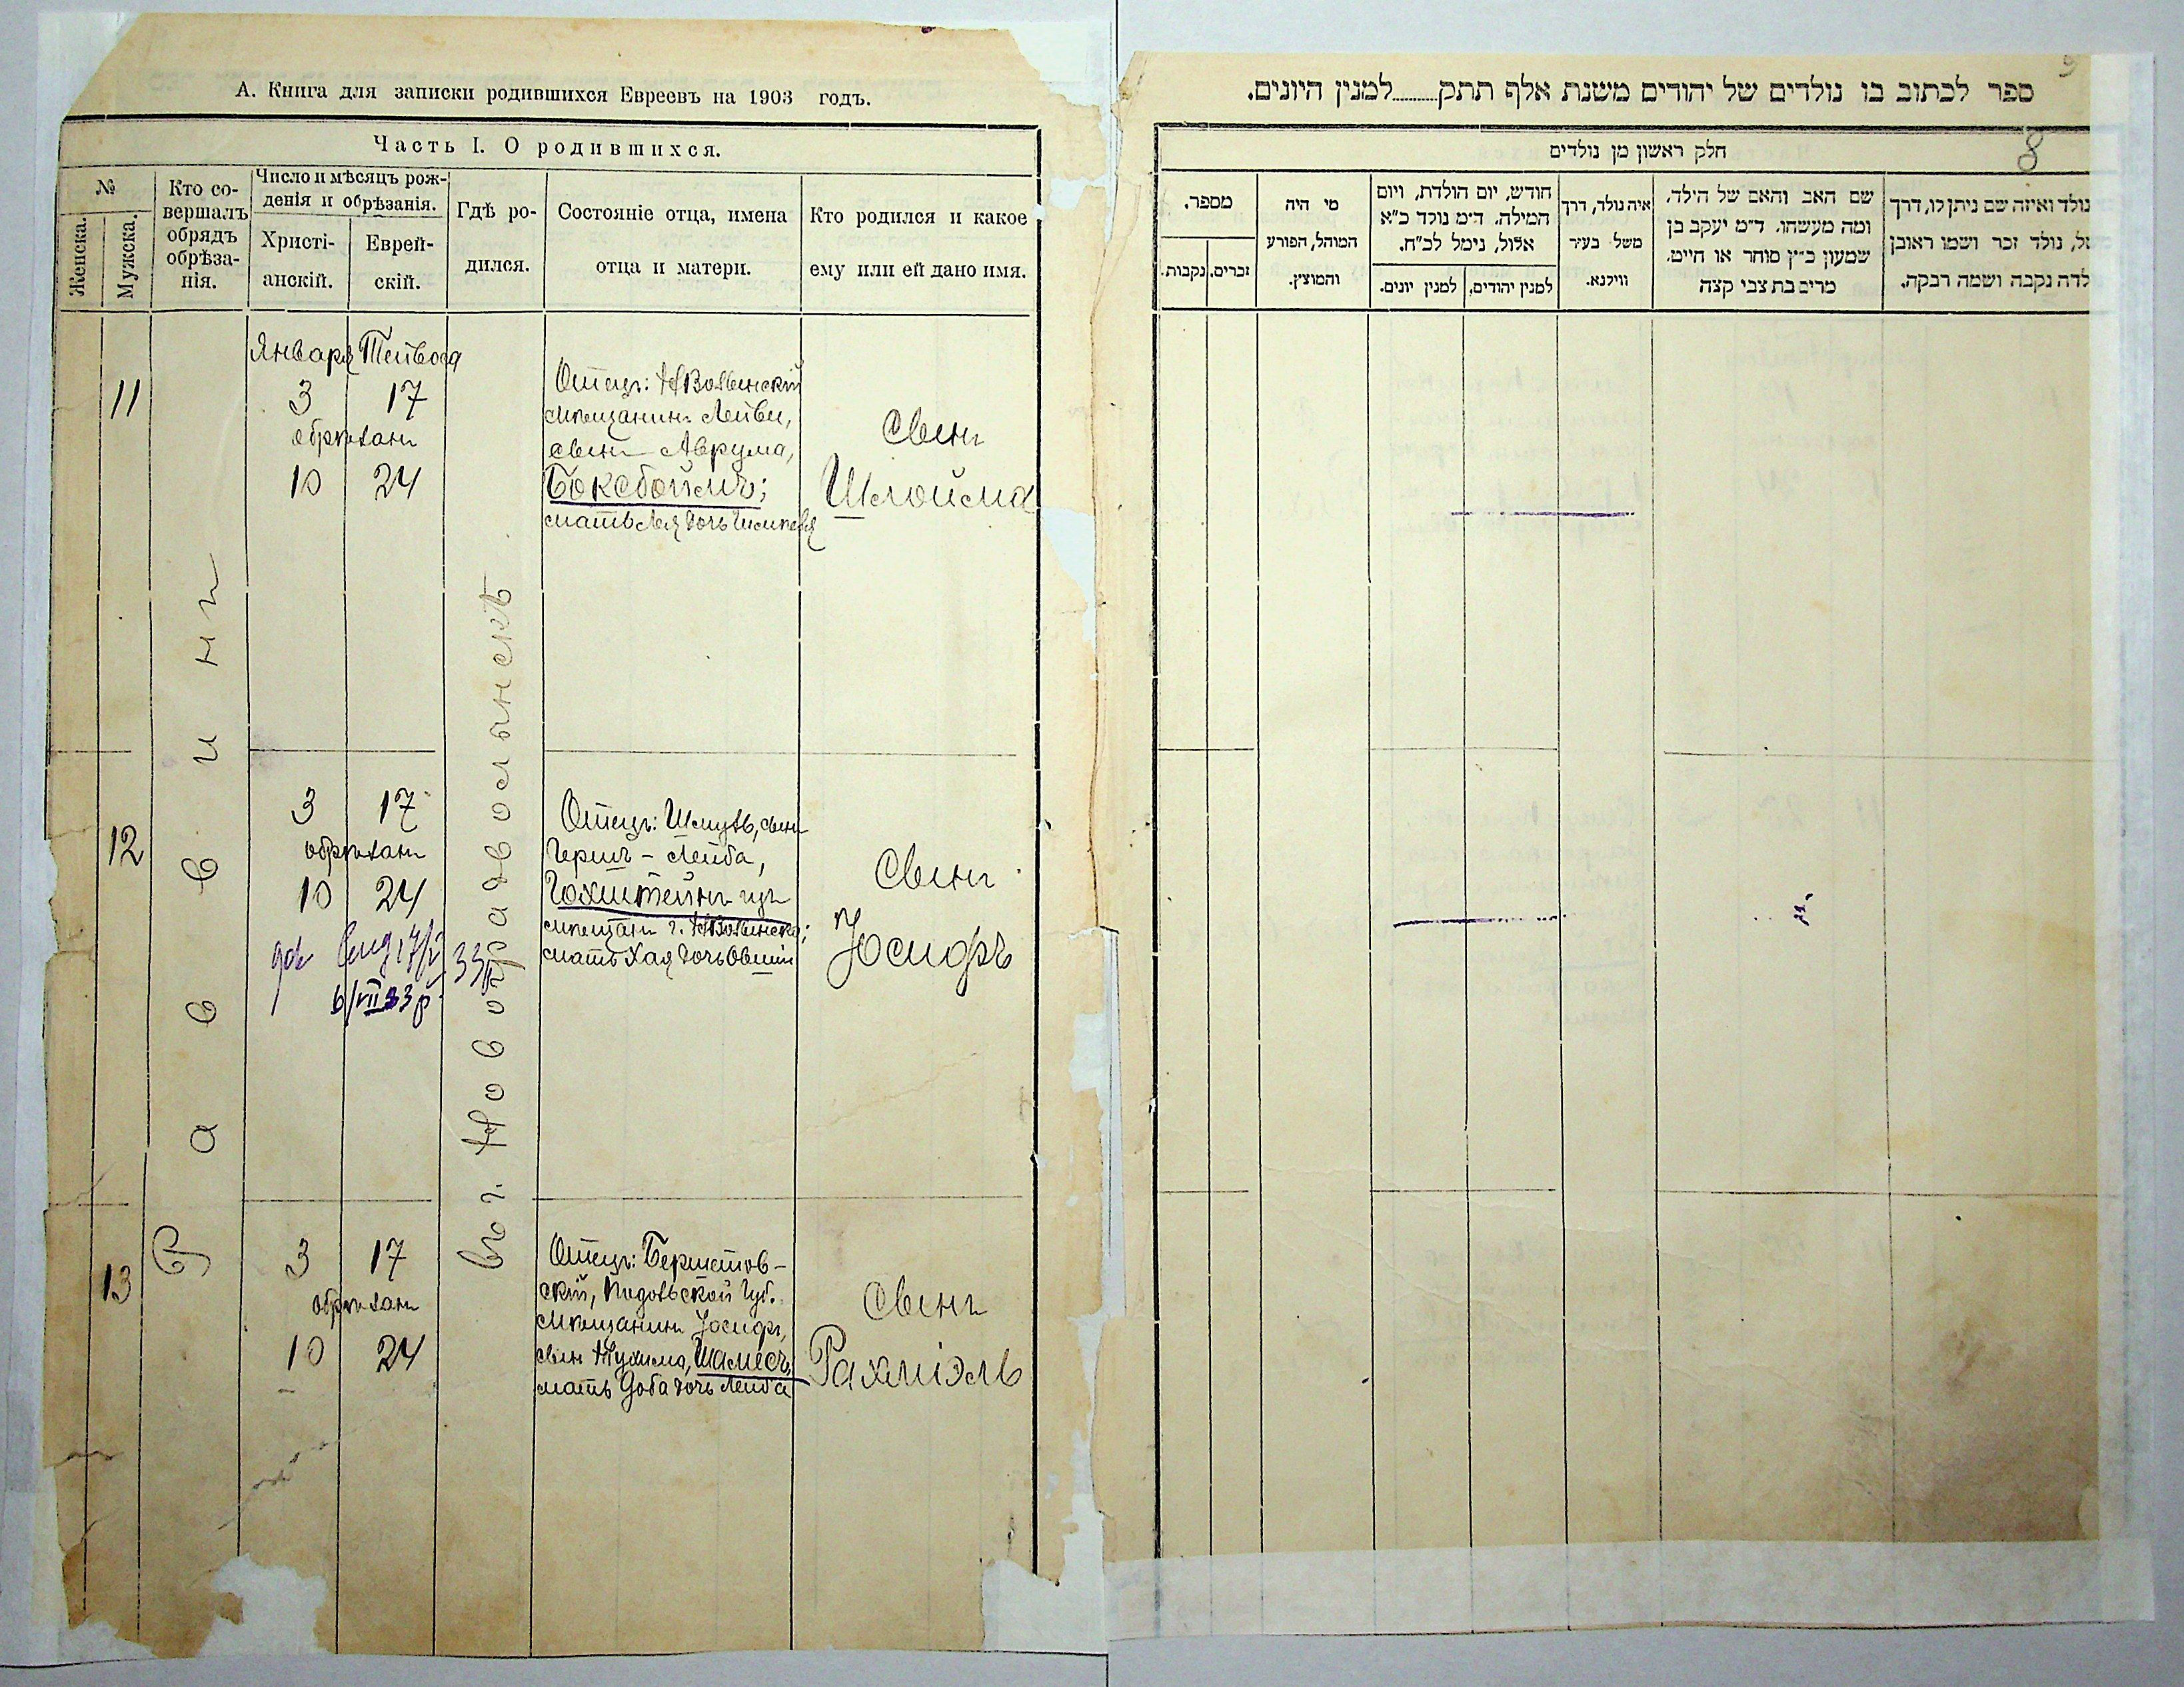 А. Книга для записки родившихся Евреевъ на 1903 годъ.
Часть I. О родившихся.
№
Женска.
Мужска.
Кто со-
вершалъ
обрядъ
обрѣза-
нія.
Число и мѣсяцъ рож-
денія и обрѣзанія.
Христі-
анскій.
Еврей-
скій.
Гдѣ ро-
дился.
Состояніе отца, имена
отца и матери.
Кто родился и какое
ему или ей дано имя.
Раввинъ
въ г. Новоградволынскѣ
11
Января Тейвеса
3 17
обрѣзанъ
10 24
Отецъ: НВолынскій
мѣщанинъ Лейви,
сынъ Аврума,
Боксбоймъ;
мать Лея дочь
Сынъ
Шлойма
12
3 17
обрѣзанъ
10 24
6/VII 33 р.
Отецъ: Шмуль, сынъ
Гершъ-Лейба,
Гохштейнъ изъ
мѣщанъ г. НВолынска;
мать Хая дочь Овшій
Сынъ
Іосифъ
13
3 17
обрѣзанъ
10 24
Отецъ:
скій, Подольской Губ.
мѣщанинъ Іосифъ,
сынъ Нухима, Шамесъ,
мать Доба дочь Лейба
Сынъ
Рахміэль
ספר לכתוב בו נולדים של יהודים משנת אלף תתק........למנין היונים.
8
חלק ראשון מן נולדים
מספר.
זכרים.
נקבות.
מי היה
המוהל, הפורע
והמוצץ.
חודש, יום הולדת, ויום
המילה. ד״מ נולד כ״א
אלול, נימל לכ״ח.
למנין יהודים.
למנין יונים.
איה נולד, דרך
משל בעיר
ווילנא.
שם האב והאם של הילד.
ומה מעשהו. ד״מ יעקב בן
שמעון כ״ץ סוחר או חייט.
מרים בת צבי קצה
נולד ואיזה שם ניתן לו, דרך
של, נולד זכר ושמו ראובן
ילדה נקבה ושמה רבקה.